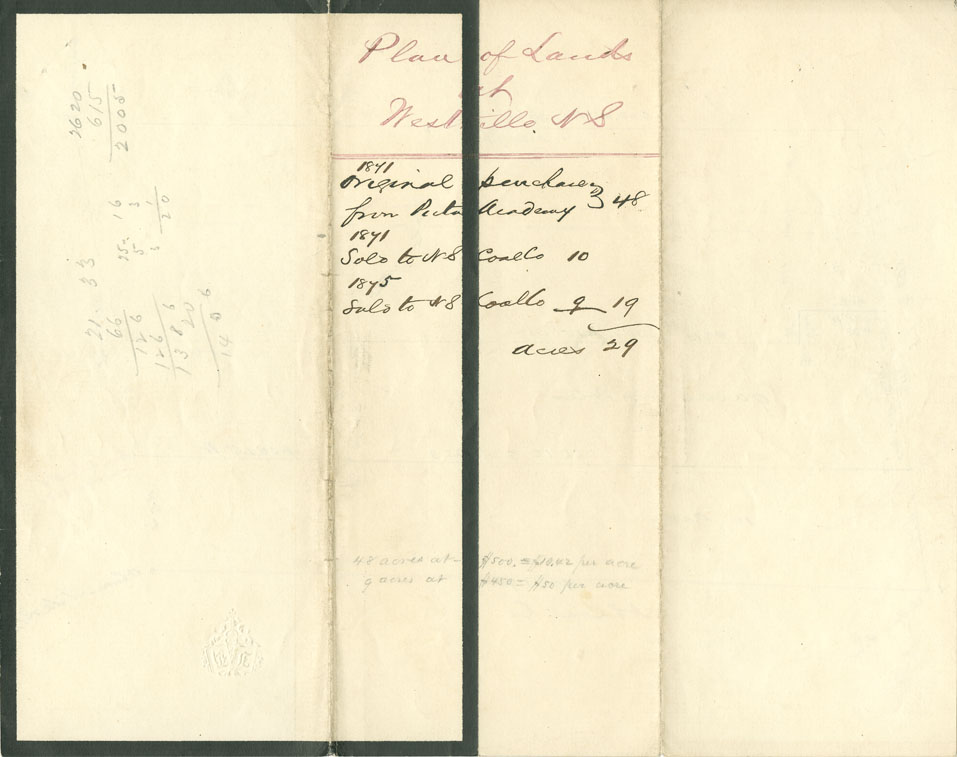 Plan of Lands
at
Westville NS
1871
Original purchase
from Pictou Academy 48
1871
Sold to NS Coal Co 10
1875
Sold to NS Coal Co 9 19
acres 29
48 acres at $500. = $10.42 per acre
9 acres at $450 = $50 per acre
2620
615
2005
33
21
66
126
126
1386
20